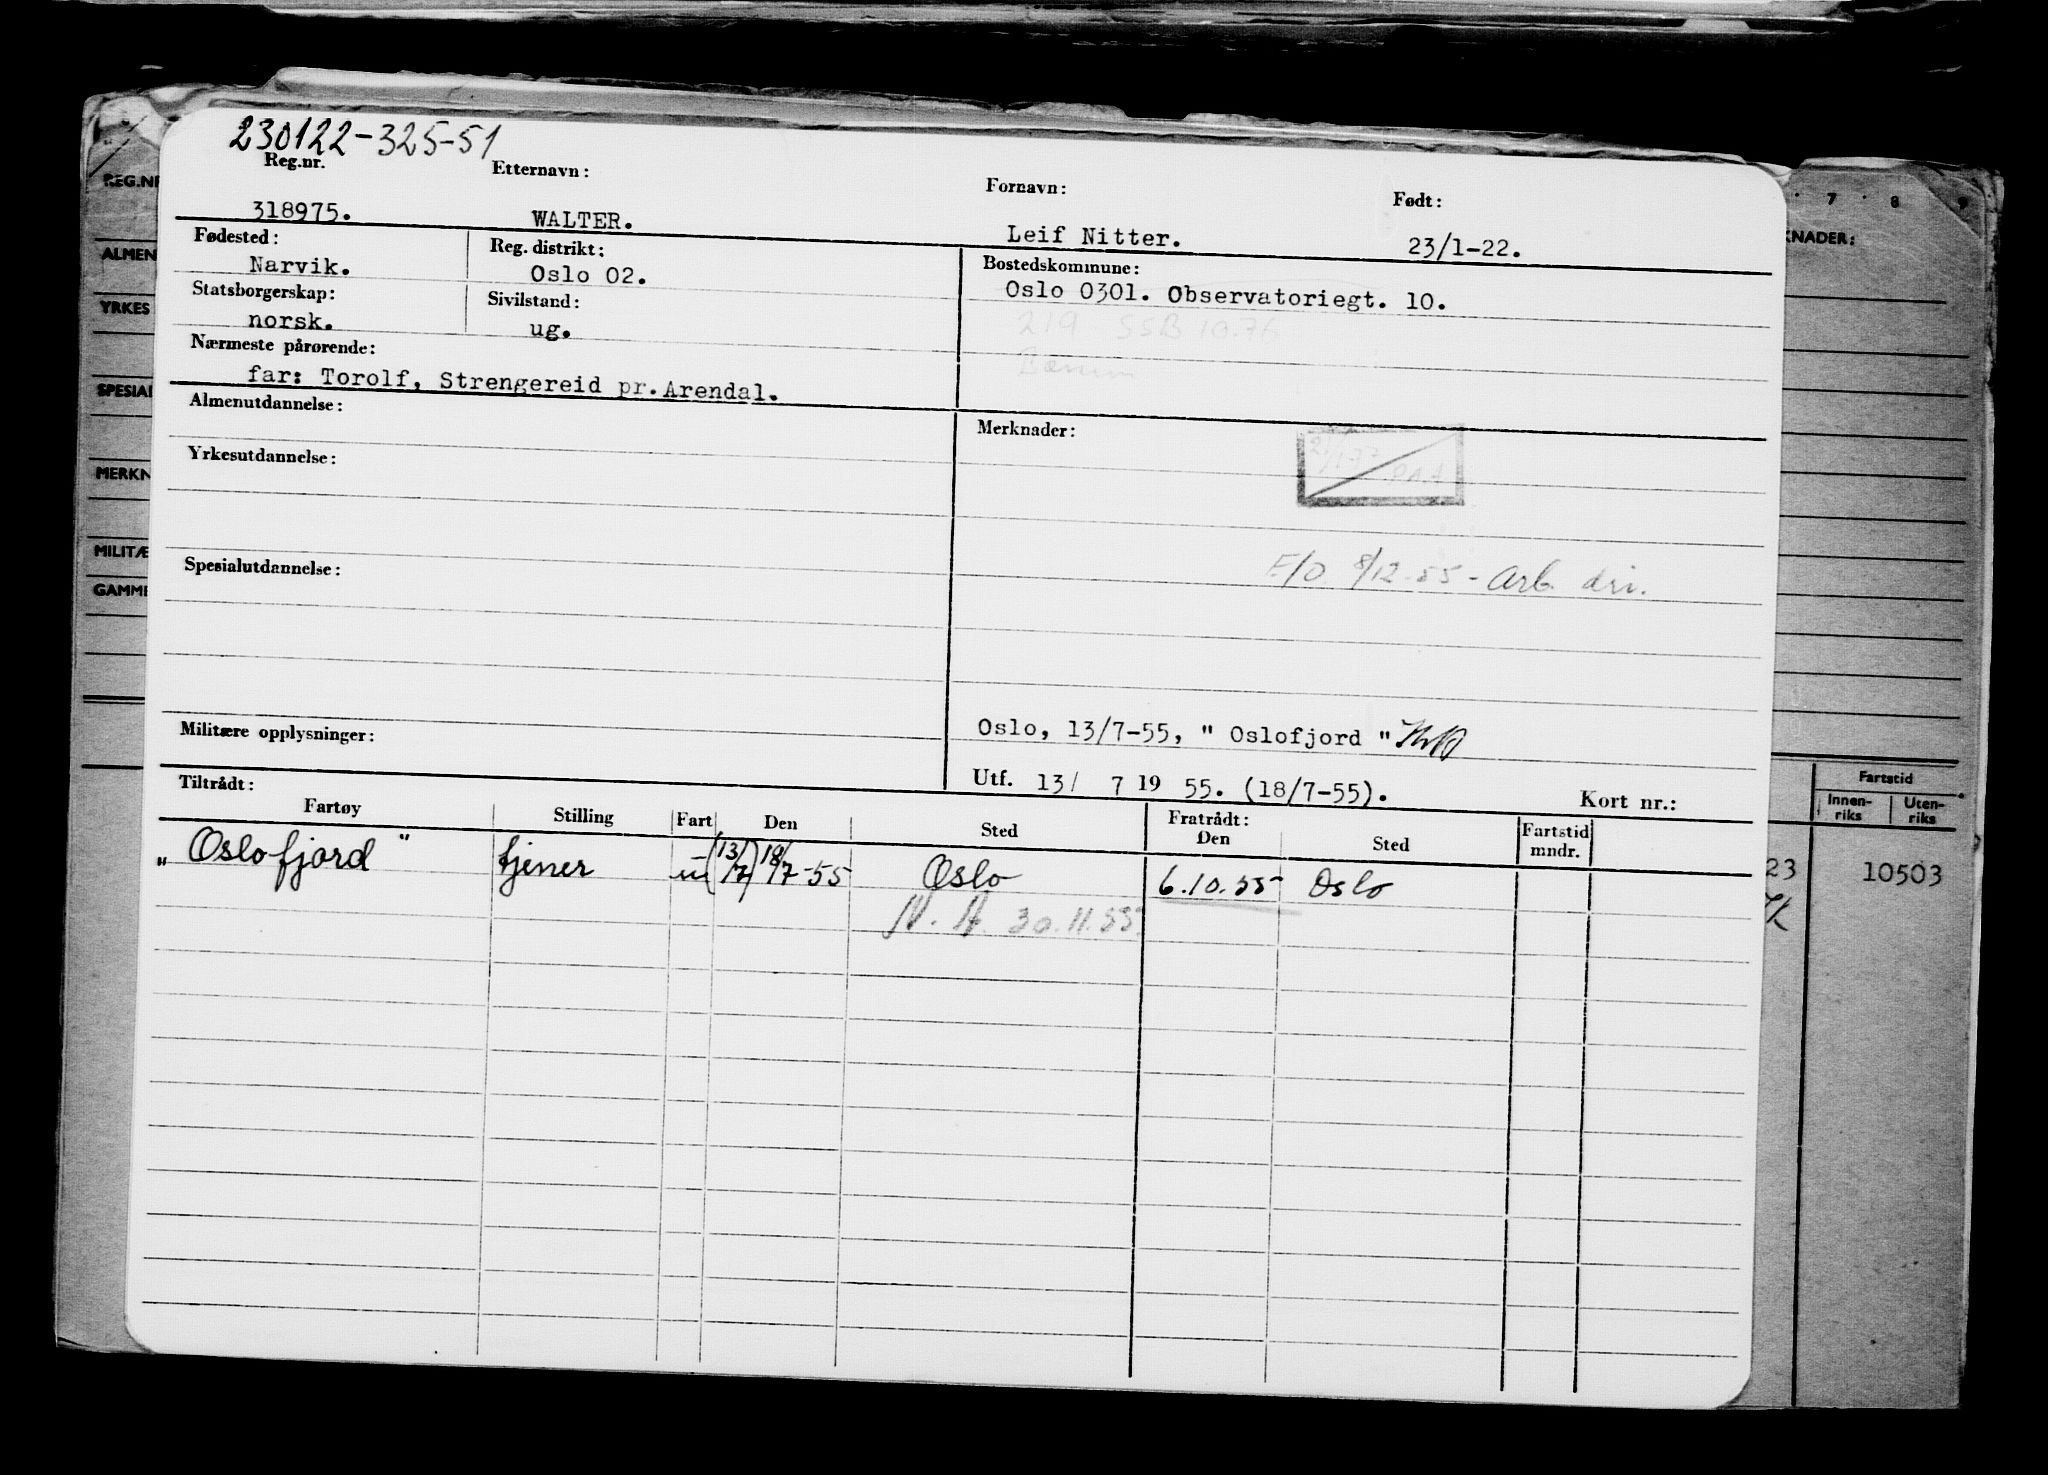 230122-325-51
Reg.nr. Etternavn: Fornavn: Født:
318975. WALTER. Leif Nitter. 23/1-22.
Fødested: Reg. distrikt: Bostedskommune:
Narvik. Oslo 02. Oslo 0301. Observatoriegt. 10.
Statsborgerskap: Sivilstand:
norsk. ug.
219 SSB 10.76
Nærmeste pårørende:
far: Torolf, Strengereid pr. Arendal.
Almenutdannelse: Merknader:
Yrkesutdannelse:
Spesialutdannelse:
F/O 8/12-55 - Arb. dir.
Militære opplysninger: Oslo, 13/7-55, " Oslofjord "
Utf. 13/ 7 19 55. (18/7-55). Kort nr.:
Tiltrådt: Fratrådt:
Fartøy Stilling Fart Den Sted Den Sted Fartstid mndr.
„ Oslofjord " tjener u (13/7) 18/7-55 Oslo 6.10.55 Oslo
N. A. 30.11.55.
REG.NR
ALMEN
YRKES
SPESIAL
MERKN
MILITÆ
GAMME
7 8 9
KNADER:
Fartstid
Innen-riks Uten-riks
23 10503